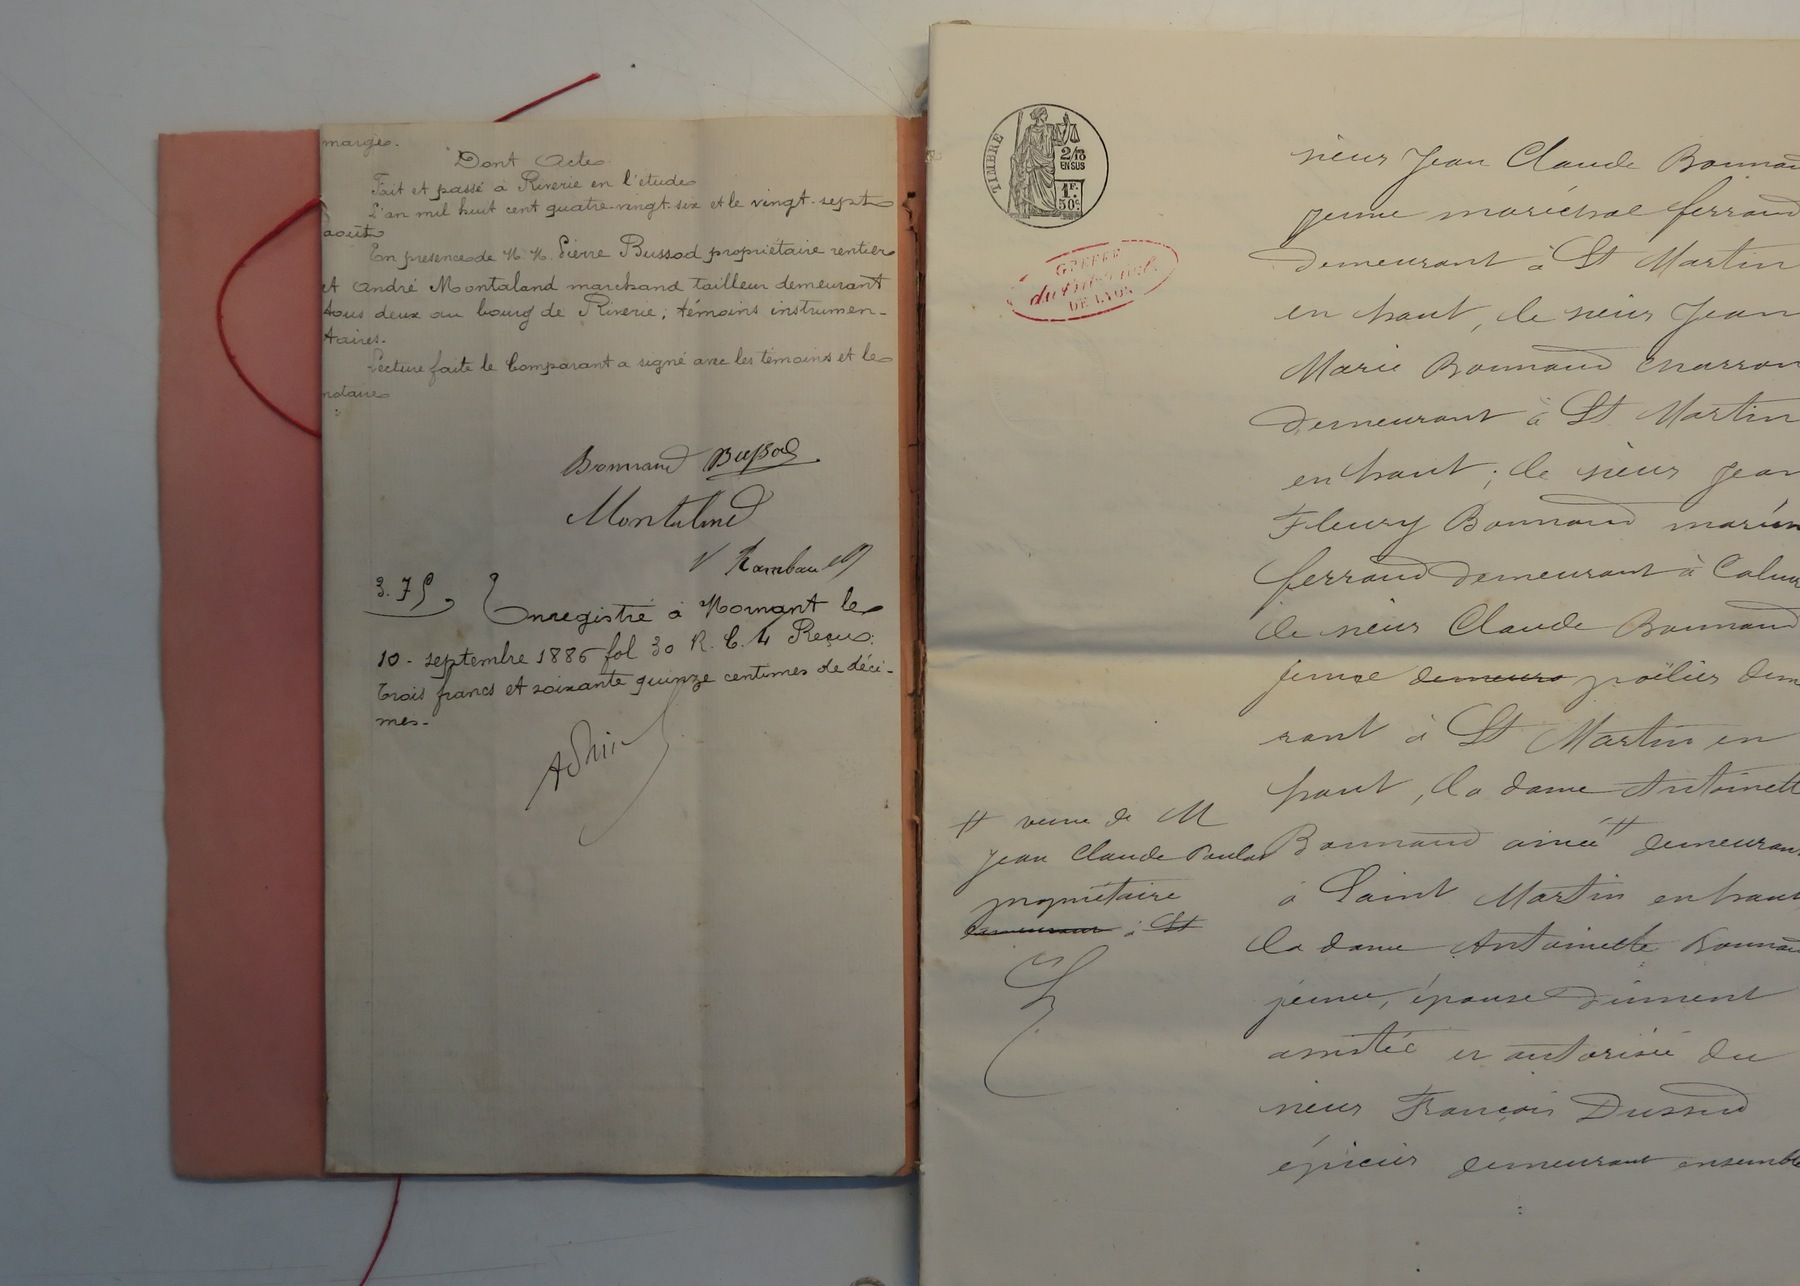 marge.
Dont Acte
Fait et passé à Riverie en l'étude
L'an mil huit cent quatre-vingt-six et le vingt-sept
août
En présence de M. M. Pierre Bussod propriétaire rentier
et André Montaland marchand tailleur demeurant
tous deux au bourg de Riverie; témoins instrumen-
taires.
Lecture faite le Comparant a signé avec les témoins et le
notaire
Bonnand Bussod
Montaland
3.75
Enregistré à Mornant le
10 - septembre 1886 fol 30 R. C. 4 Reçu:
trois francs et soixante quinze centimes de déci-
mes.
TIMBRE
2/10
EN SUS
1F.
50c.
GREFFE
du tribunal
DE LYON
sieur Jean Claude Bonnand
jeune maréchal ferrand
demeurant à St Martin
en haut, le sieur Jean
Marie Bonnand charron
demeurant à St Martin
en haut; le sieur Jean
Fleury Bonnand
ferrand demeurant à
le sieur Claude Bonnand
jeune demeura poëlier
rant à St Martin en
haut, la dame Antoinette
Bonnand ainée # demeurant
à Saint Martin en haut
la dame Antoinette Bonnand
jeune, épouse dûment
assistée et autorisée du
sieur François Dussud
épicier demeurant ensemble
# veuve de M
Jean Claude
propriétaire
demeurant à St